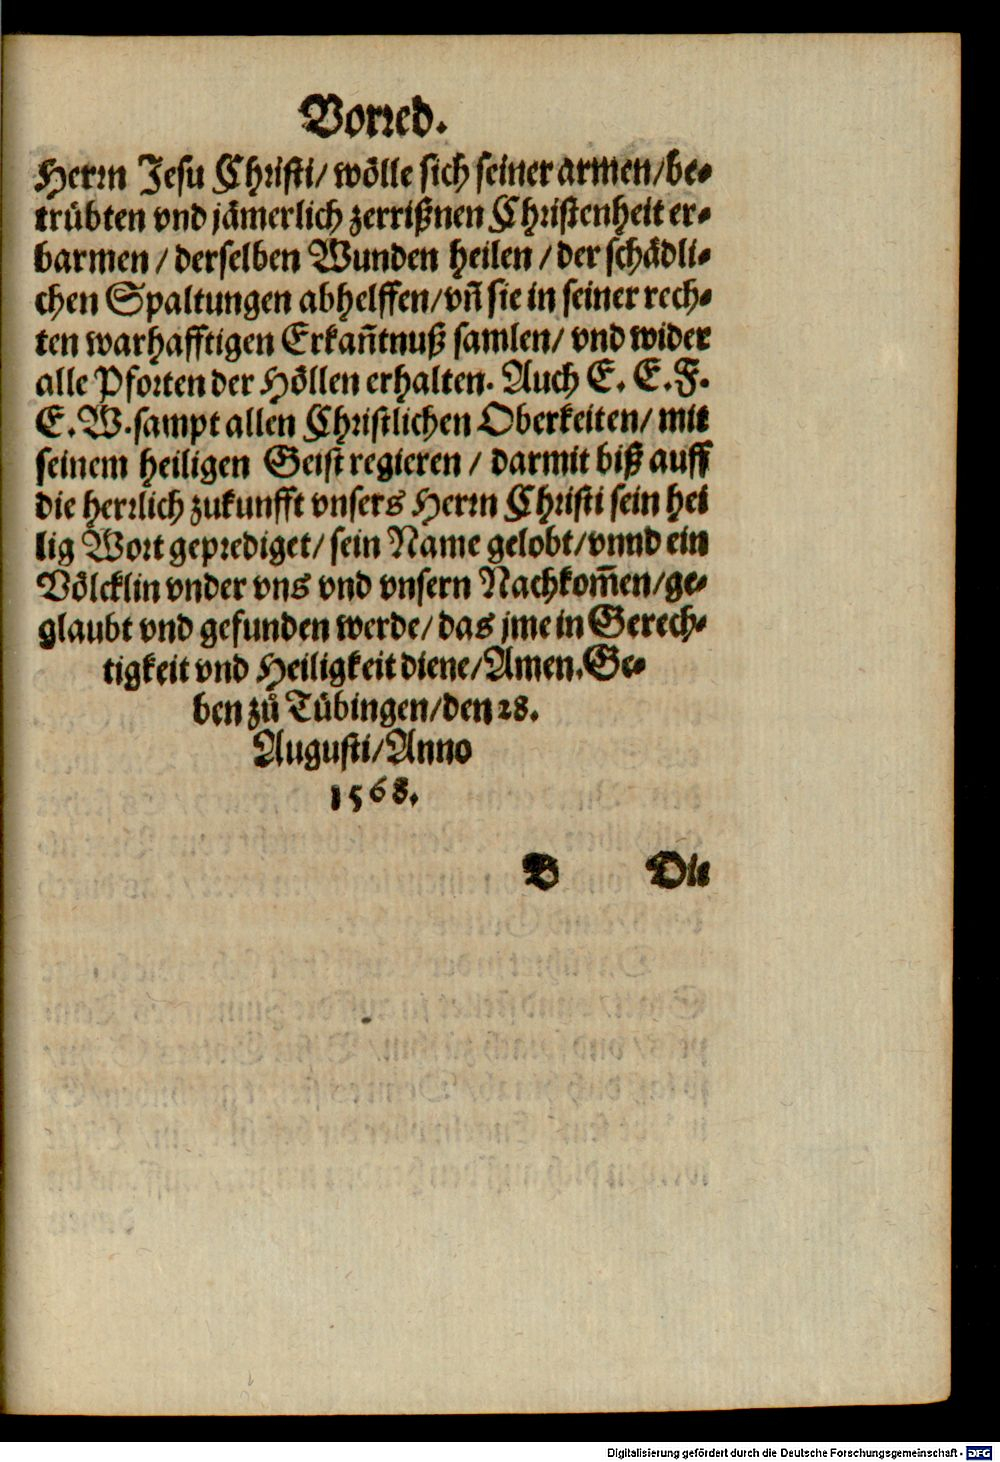 Vorred.
Herrn Jesu Christi/ wölle sich seiner armen/be-
trübten vnd jämerlich zerrißnen Christenheit er-
barmen / derselben Wunden heilen / der schädli-
chen Spaltungen abhelffen/vñ sie in seiner rech-
ten warhafftigen Erkañtnuß samlen/ vnd wider
alle Pforten der Höllen erhalten. Auch E. E. F.
E. W. sampt allen Christlichen Oberkeiten/ mit
seinem heiligen Geist regieren / darmit biß auff
die herrlich zukunfft vnsers Herrn Christi sein hei
lig Wort geprediget/ sein Name gelobt/vnnd ein
Völcklin vnder vns vnd vnsern Nachkom̃en/ge-
glaubt vnd gefunden werde/ das jme in Gerech-
tigkeit vnd Heiligkeit diene/Amen. Ge-
ben zů Tübingen/den 28.
Augusti/Anno
1568.
B Die
Digitalisierung gefördert durch die Deutsche Forschungsgemeinschaft - DFG